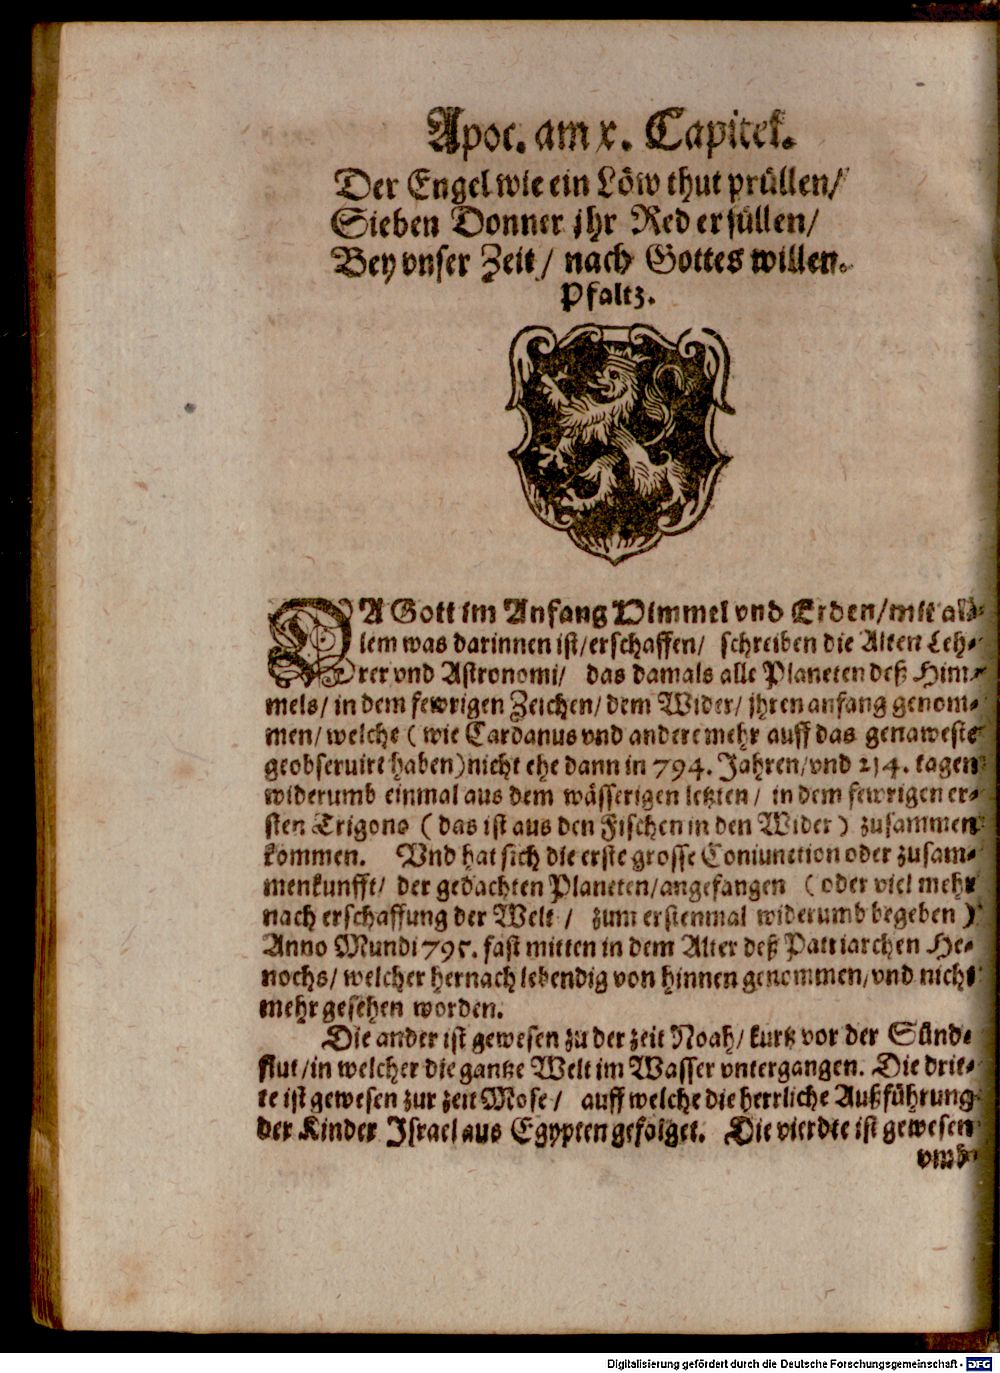 Apoc. am x. Capitel.
Der Engel wie ein Löw thut prüllen/
Sieben Donner jhr Red erfüllen/
Bey vnser Zeit/ nach Gottes willen.
Pfaltz.
DA Gott im Anfang Himmel vnd Erden/mit al-
lem was darinnen ist/erschaffen/ schreiben die Alten Leh-
rer vnd Astronomi/ das damals alle Planeten deß Him-
mels/ in dem fewrigen Zeichen/ dem Wider/ jhren anfang genom-
men/ welche ( wie Cardanus vnd andere mehr auff das genaweste
geobseruirt haben) nicht ehe dann in 794. Jahren/vnd 214. tagen
widerumb einmal aus dem wässerigen letzten/ in dem fewrigen er-
sten Trigono ( das ist aus den Fischen in den Wider ) zusammen
kommen. Vnd hat sich die erste grosse Coniunction oder zusam-
menkunfft/ der gedachten Planeten/angefangen ( oder viel mehr
nach erschaffung der Welt / zum erstenmal widerumb begeben )
Anno Mundi 795. fast mitten in dem Alter deß Patriarchen He-
nochs/ welcher hernach lebendig von hinnen genommen/vnd nicht
mehr gesehen worden.
Die ander ist gewesen zu der zeit Noah/ kurtz vor der Sünd-
flut/in welcher die gantze Welt im Wasser vntergangen. Die drit-
te ist gewesen zur zeit Mose/ auff welche die herrliche Außführung
der Kinder Israel aus Egypten gefolget. Die vierdte ist gewesen
vmb
Digitalisierung gefördert durch die Deutsche Forschungsgemeinschaft - DFG